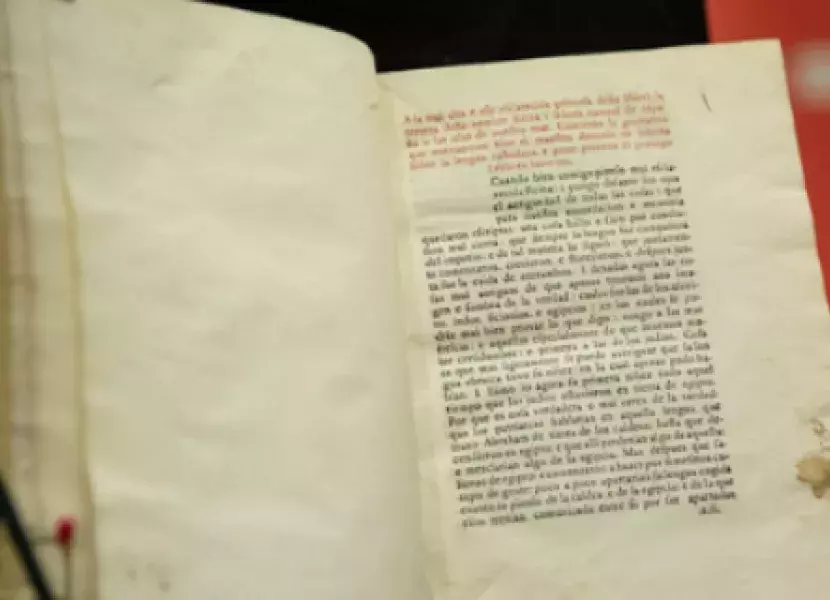 A la mui alta e assi esclarecida princesa doña Isabel la
tercera deste nombre Reina i señora natural de espa
ña e las islas de nuestro mar. Comiença la gramatica
que nueva mente hizo el maestro Antonio de lebrixa
sobre la lengua castellana. e pone primero el prologo.
Cuando bien comigo pienso mui escla
recida Reina: i pongo delante los ojos
el antiguedad de todas las cosas: que
para nuestra recordacion e memoria
quedaron escriptas: una cosa hallo e saco por conclu
sion mui cierta: que siempre la lengua fue compañera
del imperio: e de tal manera lo siguio: que junta mente
començaron. crecieron. e florecieron. e despues jun
ta fue la caida de entrambos. I dexadas agora las co
sas mui antiguas de que apenas tenemos una ima
gen e sombra de la verdad: cuales son las de los assiri
os. indos. sicionios. e egipcios: en los cuales se po
dria mui bien provar lo que digo: vengo a las mas
frescas: e aquellas especial mente de que tenemos ma
ior certidumbre: e primero a las de los judios. Cosa
es que mui ligera mente se puede averiguar que la len
gua ebraica tuvo su niñez: en la cual apenas pudo ha
blar. I llamo io agora su primera niñez todo aquel
tiempo que los judios estuvieron en tierra de egipto.
Por que es cosa verdadera o mui cerca de la verdad:
que los patriarcas hablarian en aquella lengua que
traxo Abraham de tierra de los caldeos: hasta que de
cendieron en egipto: e que alli perderian algo de aquella:
e mezclarian algo de la egipcia. Mas despues que sa
lieron de egipto: e començaron a hazer por si mesmos cu
erpo de gente: poco a poco apartarian su lengua cogida
cuanto io pienso de la caldea: e de la egipcia: e de la que
ellos ternian comunicada entre si: por ser apartados
a.ii.